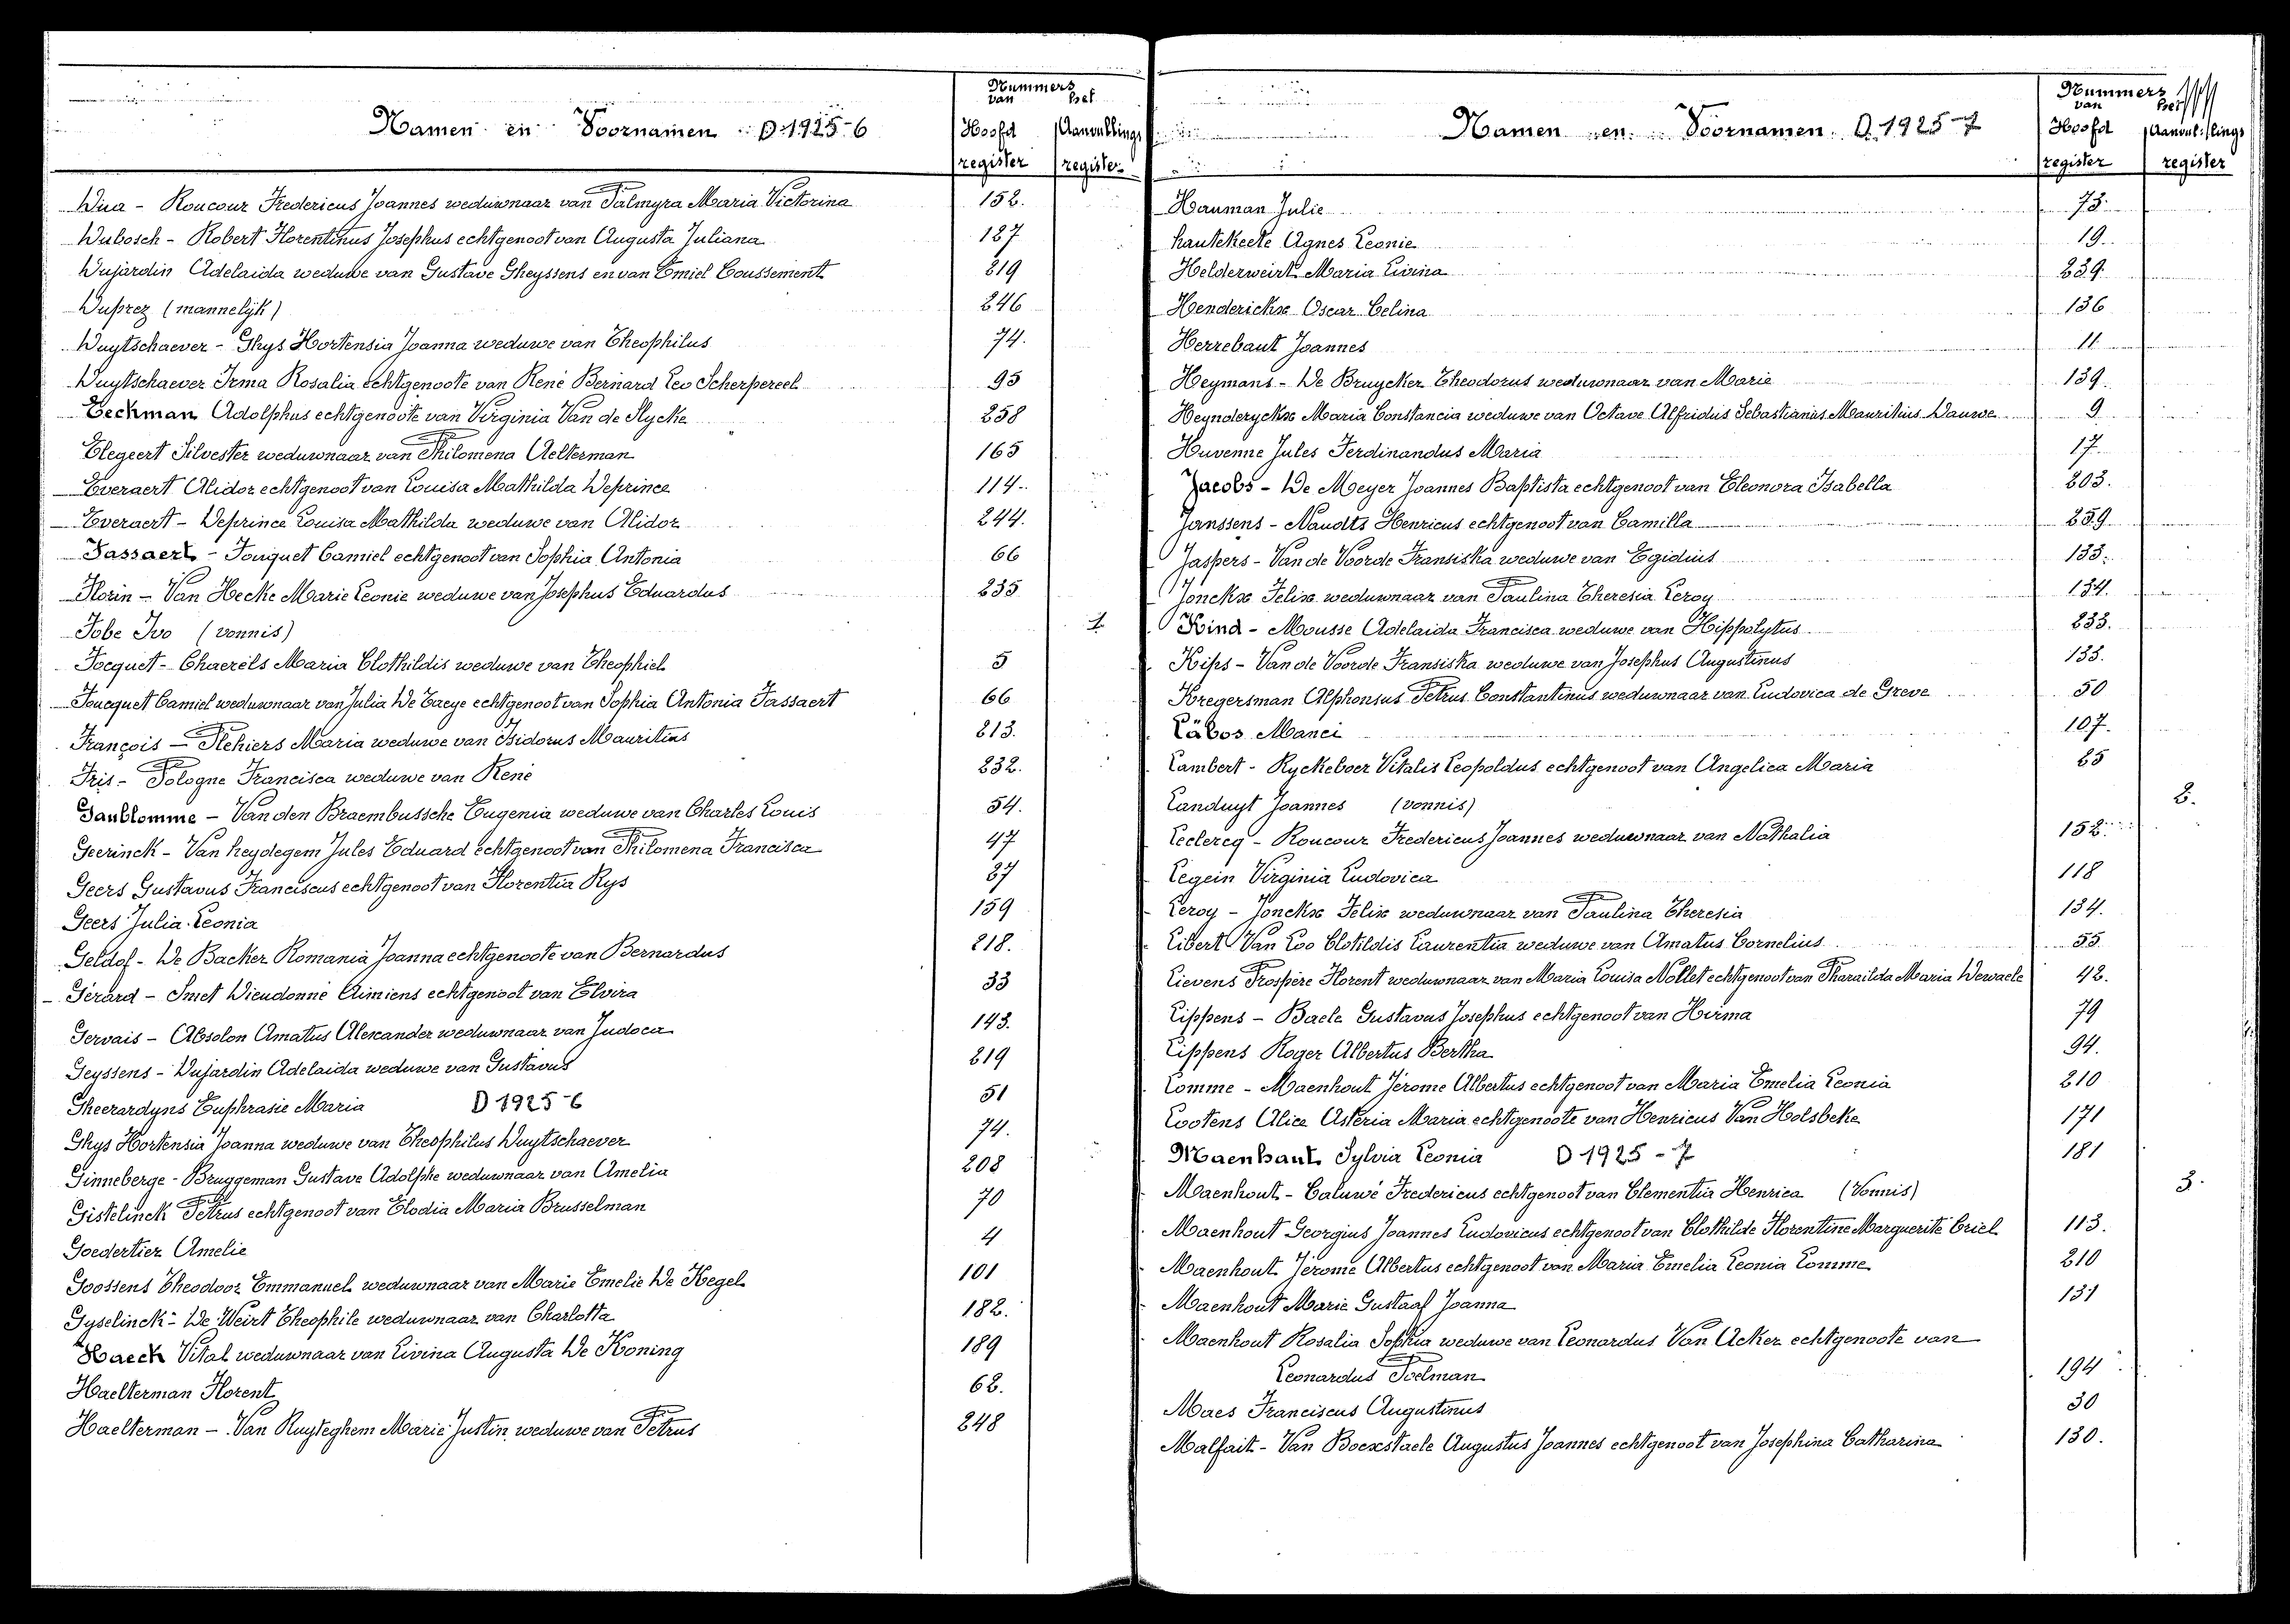 Namen en Voornamen D.1925-6
Nummers
van het
Hoofd Aanvullings
register register
Dua - Roucour Fredericus Joannes weduwnaar van Palmyra Maria Victorina 152.
Dubosch - Robert Florentinus Josephus echtgenoot van Augusta Juliana 127
Dujardin Adelaida weduwe van Gustave Gheyssens en van Emiel Coussement 219
Duprez (mannelijk) 246
Duytschaever - Ghys Hortensia Joanna weduwe van Theophilus 74.
Duytschaever Irma Rosalia echtgenoote van René Bernard Leo Scherpereel 95
Eeckman Adolphus echtgenoote van Virginia Van de Slycke 258
Elegeert Silvester weduwnaar van Philomena Aelterman 165
Everaert Alidor echtgenoot van Louisa Mathilda Deprince 114.
Everaert - Deprince Louisa Mathilda weduwe van Alidor 244.
Fassaert - Fouquet Camiel echtgenoot van Sophia Antonia 66
Florin - Van Hecke Marie Leonie weduwe van Josephus Eduardus 235
Fobe Ivo (vonnis) 1.
Focquet - Chaerels Maria Clothildis weduwe van Theophiel 5
Foucquet Camiel weduwnaar van Julia De Taeye echtgenoot van Sophia Antonia Fassaert 66
François - Plehiers Maria weduwe van Isidorus Mauritius 213.
Fris - Pologne Francisca weduwe van René 232.
Ganblomme - Van den Braembussche Eugenia weduwe van Charles Louis 54.
Geerinck - Van heydegem Jules Eduard echtgenoot van Philomena Francisca 47
Geers Gustavus Franciscus echtgenoot van Florentia Rys 27
Geers Julia Leonia 159
Geldof - De Backer Romania Joanna echtgenoote van Bernardus 218.
Gérard - Smet Dieudonné Aimiens echtgenoot van Elvira 33
Gervais - Absolon Amatus Alexander weduwnaar van Judoca 143.
Geyssens - Dujardin Adelaida weduwe van Gustavus 219
Gheerardyns Euphrasie Maria D 1925-6 51
Ghys Hortensia Joanna weduwe van Theophilus Duytschaever 74.
Ginneberge - Bruggeman Gustave Adolphe weduwnaar van Amelia 208
Gistelinck Petrus echtgenoot van Elodia Maria Brusselman 70
Goedertier Amelie 4
Goossens Theodoor Emmanuel weduwnaar van Marie Emelie De Kegel 101
Gyselinck - De Weirt Theophile weduwnaar van Charlotta 182.
Haeck Vital weduwnaar van Livina Augusta De Koning 189
Haelterman Florent 62.
Haelterman - Van Ruyteghem Marie Justin weduwe van Petrus 248
Namen en Voornamen. D.1925-7
Nummers
van het
Hoofd Aanvullings
register register
Hauman Julie 73.
hautekeete Agnes Leonie 19.
Helderweirt Maria Livina 229.
Henderickx Oscar Celina 136
Herrebaut Joannes 11
Heymans - De Bruycker Theodorus weduwnaar van Marie 139.
Heynderyckx Maria Constancia weduwe van Octave Alfridus Sebastianus Mauritius Dauwe 9
Huvenne Jules Ferdinandus Maria 17.
Jacobs - De Meyer Joannes Baptista echtgenoot van Eleonora Isabella 203.
Janssens - Naudts Henricus echtgenoot van Camilla 259
Jaspers - Van de Voorde Fransiska weduwe van Egidius 133.
Jonckx Felix weduwnaar van Paulina Theresia Leroy 134.
Kind - Mousse Adelaida Francisca weduwe van Hippolytus 233.
Kips - Van de Voorde Fransiska weduwe van Josephus Augustinus 133.
Kregersman Alphonsus Petrus Constantinus weduwnaar van Ludovica de Greve 50
Läbos Manei 107.
Lambert - Ryckeboer Vitalis Leopoldus echtgenoot van Angelica Maria 65
Landuyt Joannes (vonnis) 2.
Leclercq - Roucour Fredericus Joannes weduwnaar van Nathalia 152.
Legein Virginia Ludovica 118
Leroy - Jonckx Felix weduwnaar van Paulina Theresia 134.
Libert Van Loo Clotildis Laurentia weduwe van Amatus Cornelius 55
Lievens Prospère Florent weduwnaar van Maria Louisa Nollet echtgenoot van Pharaïlda Maria Dewaele 42.
Lippens - Baele Gustavus Josephus echtgenoot van Hirma 79
Lippens Roger Albertus Bertha 94.
Lomme - Maenhout Jérome Albertus echtgenoot van Maria Emelia Leonia 210
Lootens Alice Asteria Maria echtgenoote van Henricus Van Holsbeke 171
Maenhaut Sylvia Leonia D 1925-7 181
Maenhout - Caluwé Fredericus echtgenoot van Clementia Henrica (Vonnis) 3.
Maenhout Georgius Joannes Ludovicus echtgenoot van Clothilde Florentine Marguerite Criel 113.
Maenhout Jérome Albertus echtgenoot van Maria Emelia Leonia Lomme 210
Maenhout Marie Gustaaf Joanna 131
Maenhout Rosalia Sophia weduwe van Leonardus Van Acker echtgenoote van
Leonardus Poelman 194
Maes Franciscus Augustinus 30
Malfait - Van Boexstaele Augustus Joannes echtgenoot van Josephina Catharina 130.